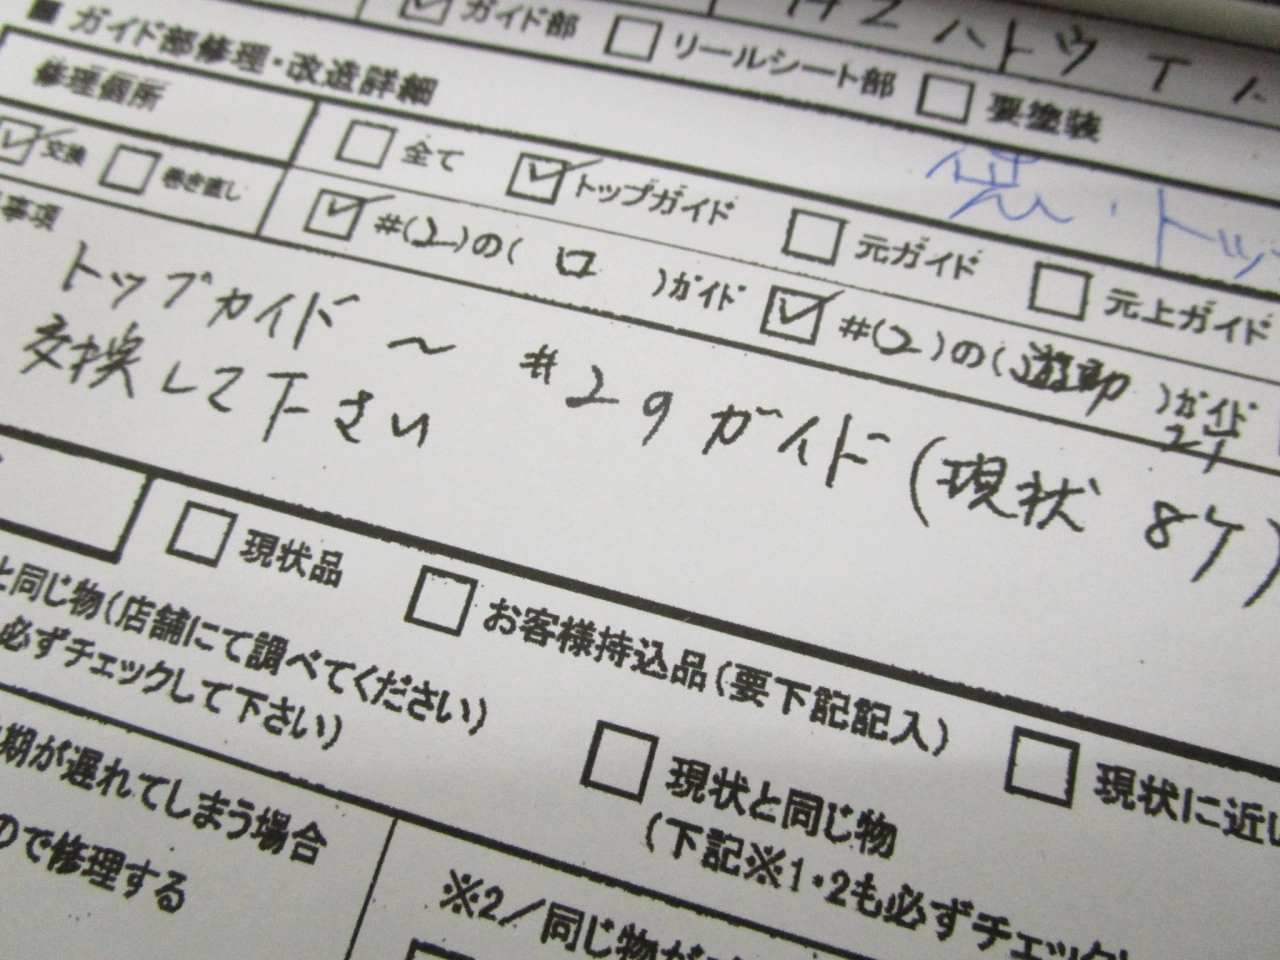 ☑ ガイド部 □ リールシート部 □ 要塗装
■ ガイド部修理・改造詳細
修理個所
□ 全て ☑ トップガイド □ 元ガイド □ 元上ガイド
☑ 交換 □ 巻き直し
☑ #(2)の( ロ )ガイド ☑ #(2)の(遊動)ガイド
事項
トップガイド 〜 #2の ガイド (現状 8ケ)
交換して下さい
□ 現状品 □ お客様持込品(要下記記入) □ 現状に近い
と同じ物(店舗にて調べてください)
必ずチェックして下さい)
□ 現状と同じ物
(下記※1・2も必ずチェック
期が遅れてしまう場合
ので修理する
※2/同じ物が